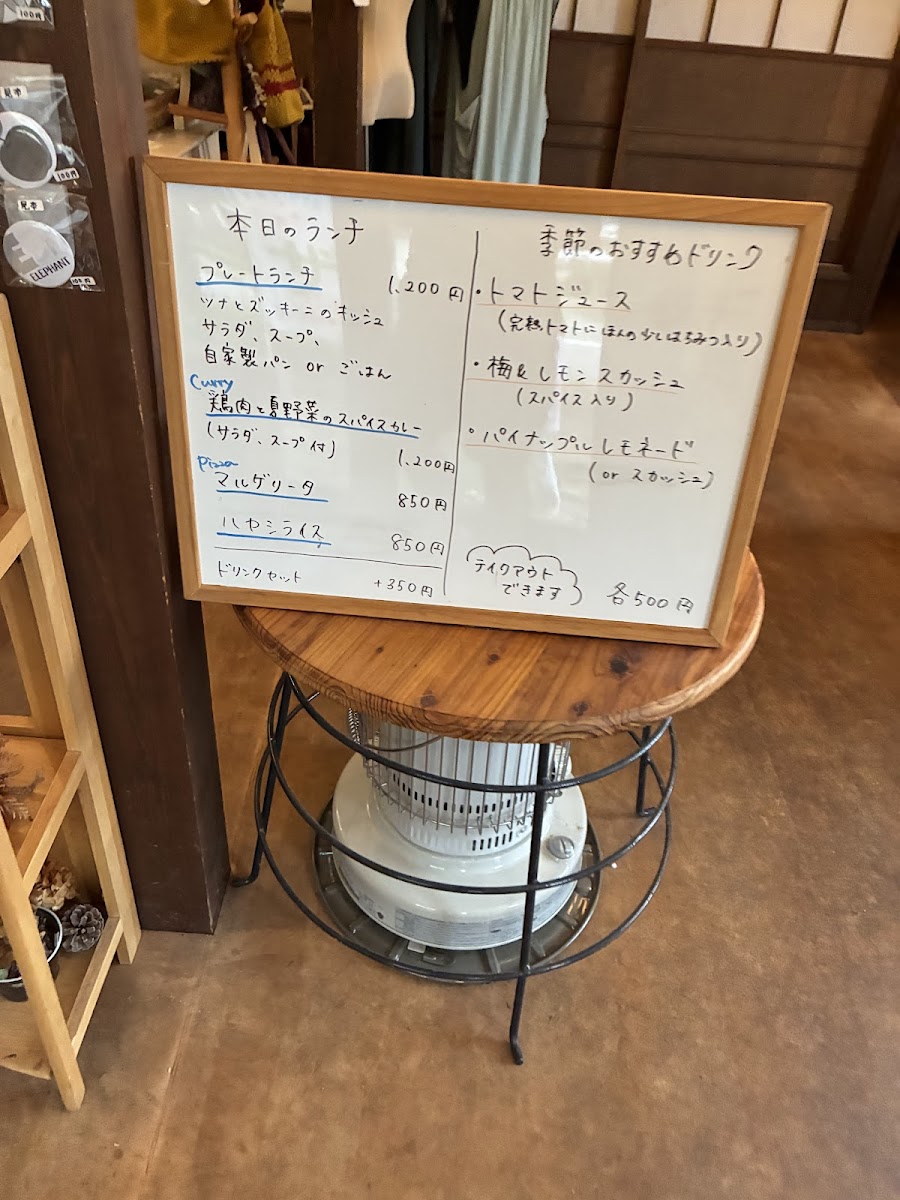 100円
見本
100円
見本
ELEPHANT
100円
本日のランチ
プレートランチ 1,200円
ツナとズッキーニのキッシュ
サラダ、スープ、
自家製パン or ごはん
Curry
鶏肉と夏野菜のスパイスカレー
(サラダ、スープ付)
1,200円
Pizza
マルゲリータ
850円
ハヤシライス 850円
ドリンクセット +350円
季節のおすすめドリンク
・トマトジュース
(完熟トマトにほんの少しはちみつ入り)
・梅&レモンスカッシュ
(スパイス入り)
・パイナップルレモネード
(or スカッシュ)
テイクアウト
できます
各500円